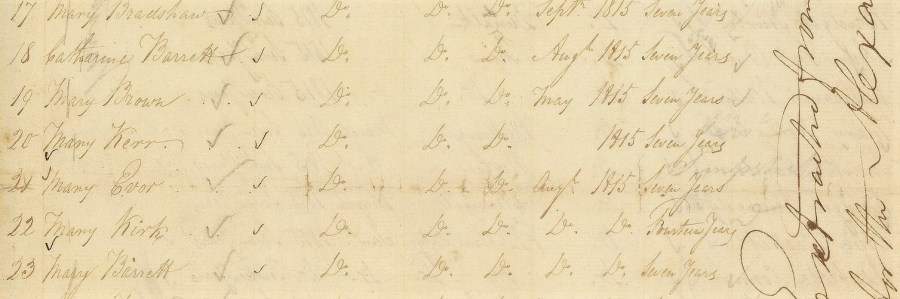 17 Mary Bradshaw s s Do. Do. Do. Septr. 1815 Seven Years
18 Catharine Barrett s s Do. Do. Do. Augt. 1815 Seven Years
19 Mary Brown s s Do. Do. Do. May 1815 Seven Years
20 Mary Kerr s s Do. Do. Do. 1815 Seven Years
21 Mary Evor s s Do. Do. Do. Augt. 1815 Seven Years
22 Mary Kirk s s Do. Do. Do. Do. Do. Fourteen Years
23 Mary Barrett s s Do. Do. Do. Do. Do. Seven Years
Extracted from